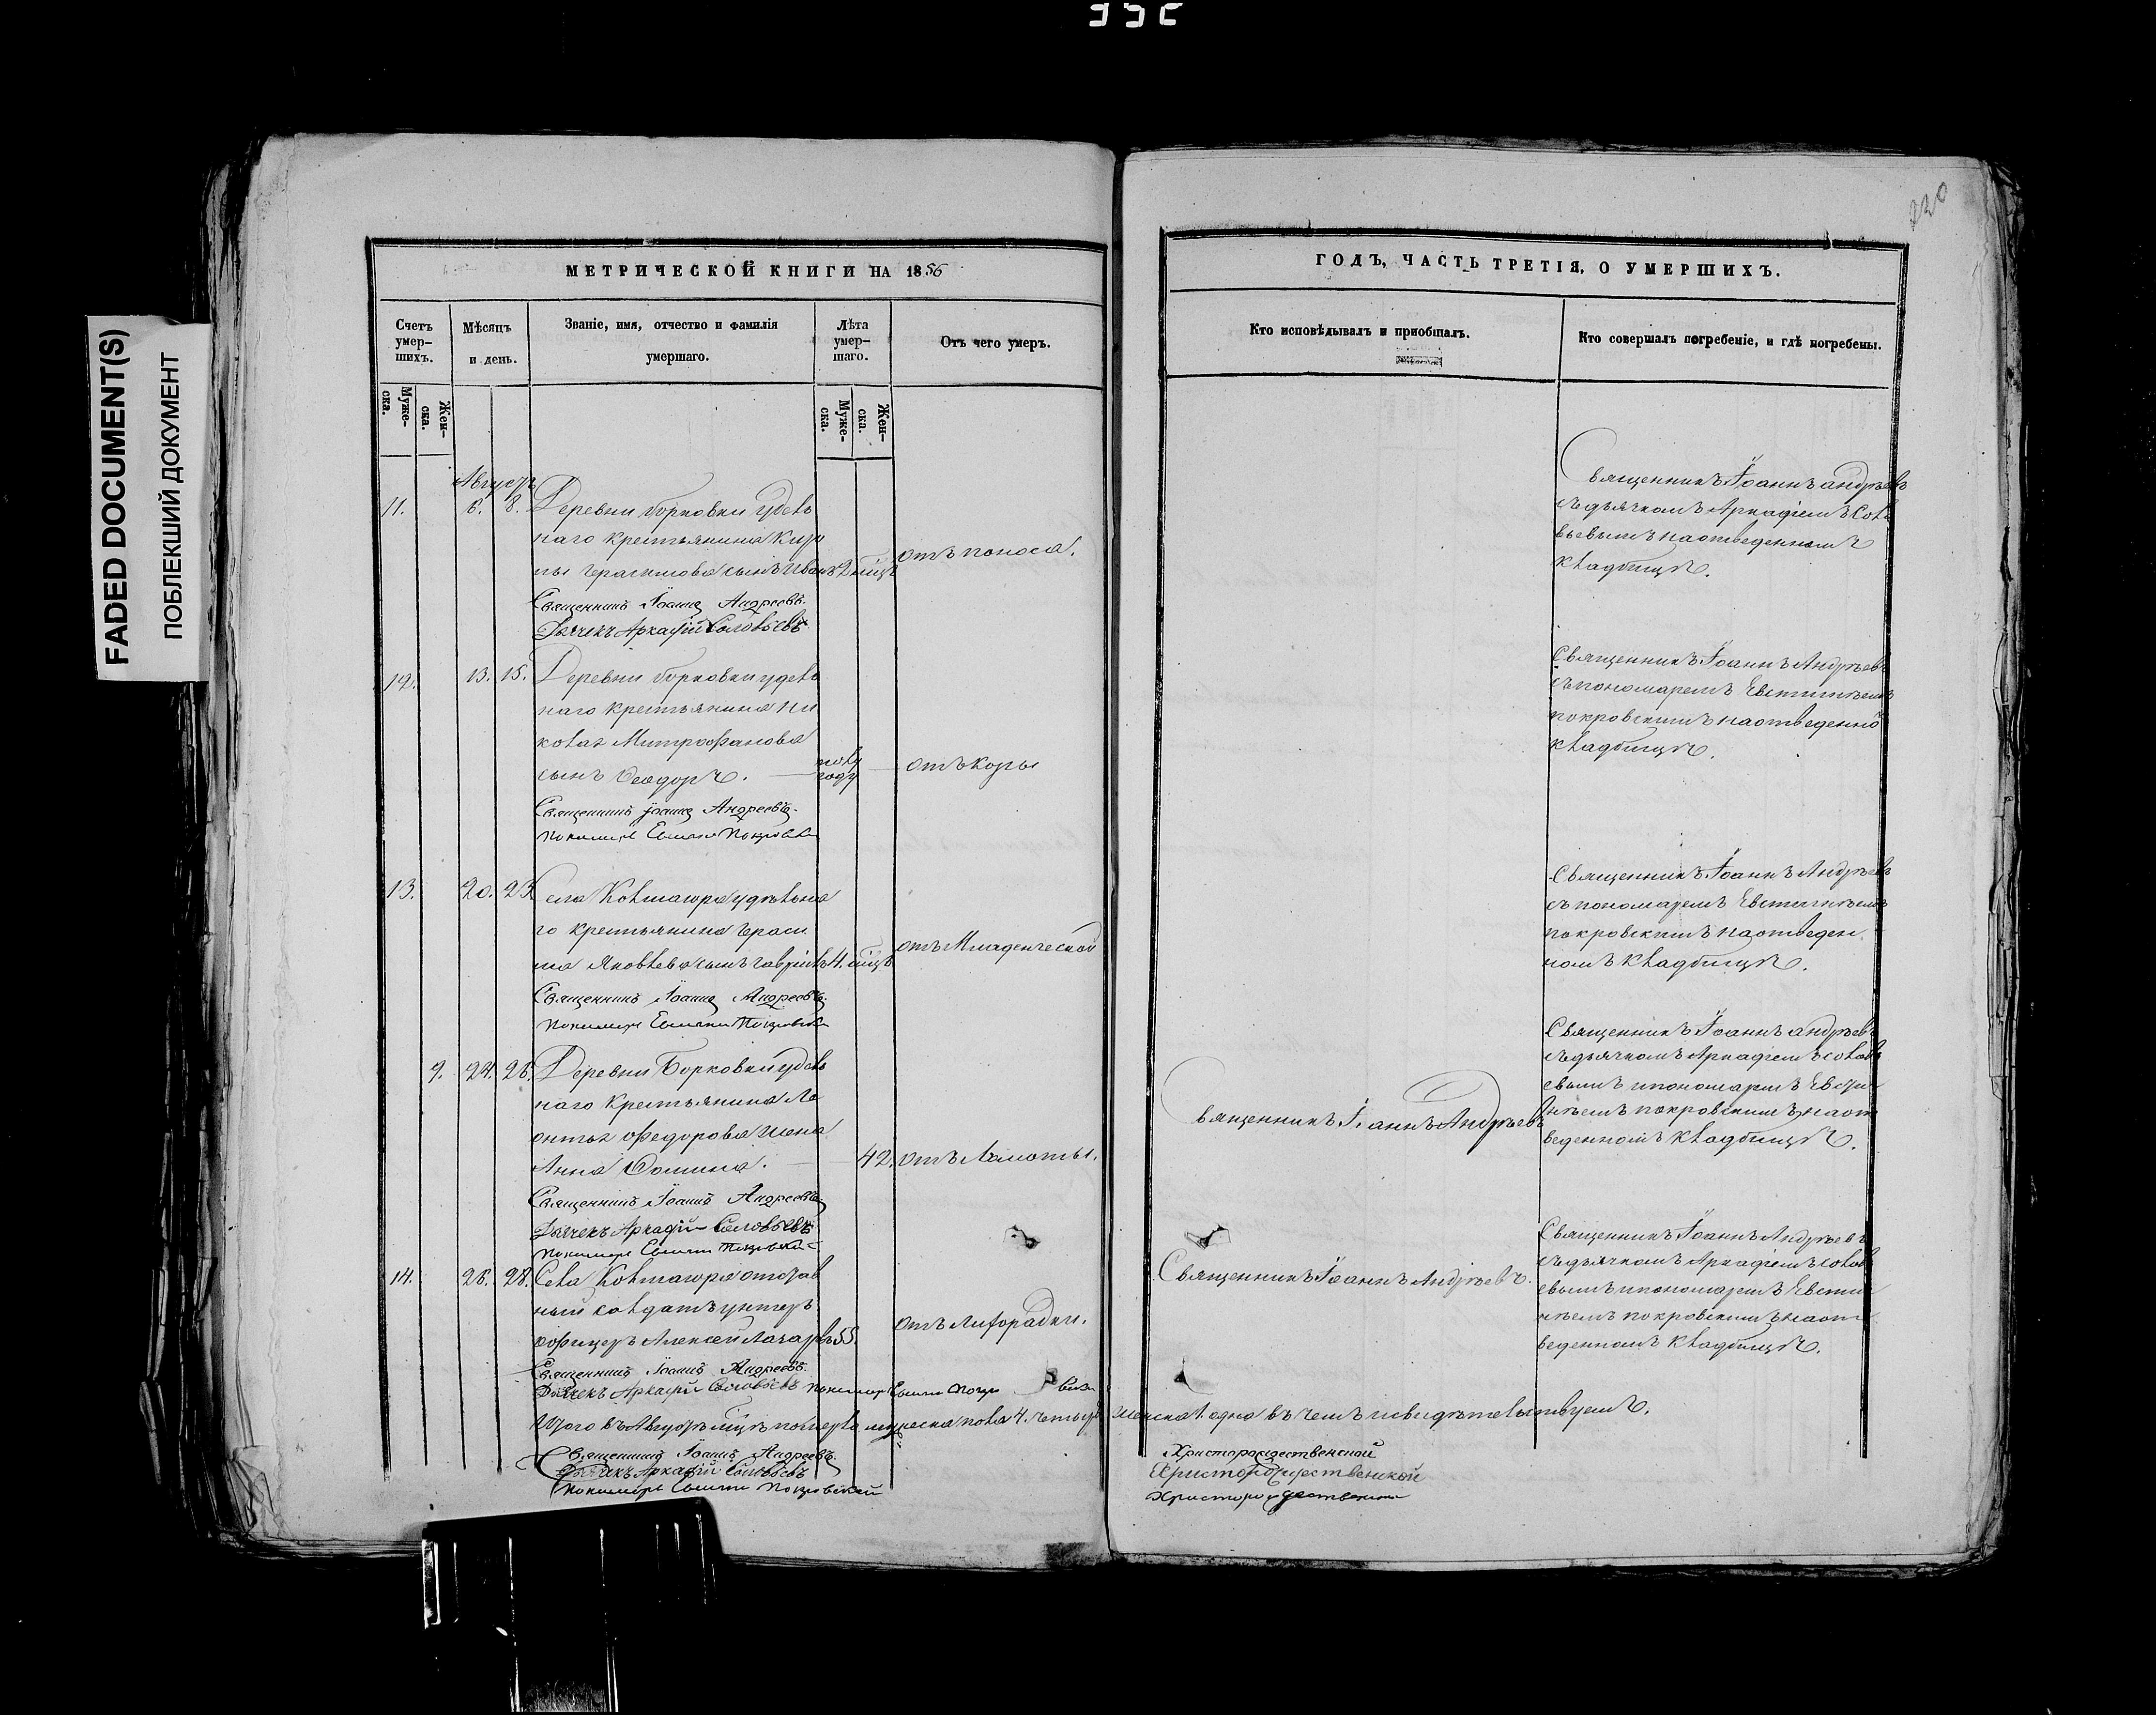 FADED DOCUMENT(S)
ПОБЛЕКШИЙ ДОКУМЕНТ
220
МЕТРИЧЕСКОЙ КНИГИ НА 1856
ГОДЪ, ЧАСТЬ ТРЕТІЯ, О УМЕРШИХЪ.
Счетъ умер-шихъ.
Муже-ска.
Жен-ска.
Мѣсяцъ и день.
Званіе, имя, отчество и фамилія умершаго.
Лѣта умер-шаго.
Муже-ска.
Жен-ска.
Отъ чего умеръ.
Кто исповѣдывалъ и пріобщалъ.
Кто совершалъ погребеніе, и гдѣ погребены.
Августъ
11. 6. 8. Деревни Борковки удѣль
наго крестьянина Кир
лы Герасимова сынъ Иванъ 2 мѣсц
отъ поноса.
Священникъ Іоаннъ Андреевъ.
Дьячекъ Аркадій Соловьевъ
Священникъ Іоаннъ Андрѣевъ
съ дьячкомъ Аркадіемъ Соло
вьевымъ на отведенномъ
кладбищѣ.
12. 13. 15. Деревни Борковки удѣль
наго крестьянина Ни
колая Митрофанова
сынъ Ѳеодоръ.
полу
году
отъ коры
Священникъ Іоаннъ Андреевъ.
Пономарь Евсигн Покровск
Священникъ Іоаннъ Андрѣев
съ пономаремъ Евстигнѣемъ
покровскимъ на отведенно
кладбищѣ.
13. 20. 23. Села Колтаюра удѣльна
го крестьянина Гераси
ма Яковлева сынъ Гаврiилъ 4. мѣсц
отъ Младенческой
Священникъ Іоаннъ Андреевъ.
Пономарь Евсигн Покровск
Священникъ Іоаннъ Андрѣевъ
съ пономаремъ Евстигнѣемъ
покровскимъ на отведен
номъ кладбищѣ.
9. 24. 26. Деревни Борковки удѣль
наго крестьянина Ле
онтья Ѳедорова жена
Анна Ѳомина.
42. отъ Ломоты.
Священникъ Іоаннъ Андреевъ
Дьячекъ Аркадій Соловьевъ
Пономарь Евсигн Покровскій
Священникъ Іоаннъ Андрѣевъ
Священникъ Іоаннъ Андрѣевъ
съ дьячкомъ Аркадіемъ Соловь
евымъ и пономаремъ Евсти
гнѣемъ покровскимъ на от
веденномъ кладбищѣ.
14. 26. 28. Села Колтаюра отстав
ный солдатъ унтеръ
офицеръ Алексей Лазаревъ 55.
отъ Лихорадки.
Священникъ Іоаннъ Андреевъ.
Дьячекъ Аркадій Соловьевъ Пономарь Евсигн Покро
Священникъ Іоаннъ Андрѣевъ.
Священникъ Іоаннъ Андрѣевъ
съ дьячкомъ Аркадіемъ Соловь
евымъ и пономаремъ Евсти
гнѣемъ покровскимъ на от
веденномъ кладбищѣ.
Итого въ Августѣ мѣсцѣ померло мужеска пола 4. четыре женска 1. одна въ чемъ и свидѣтельствуемъ.
Священникъ Іоаннъ Андреевъ.
Дьячекъ Аркадій Соловьевъ
Пономарь Евсигн Покровскій
Христорождественской
Христорождественской
Христорождественской